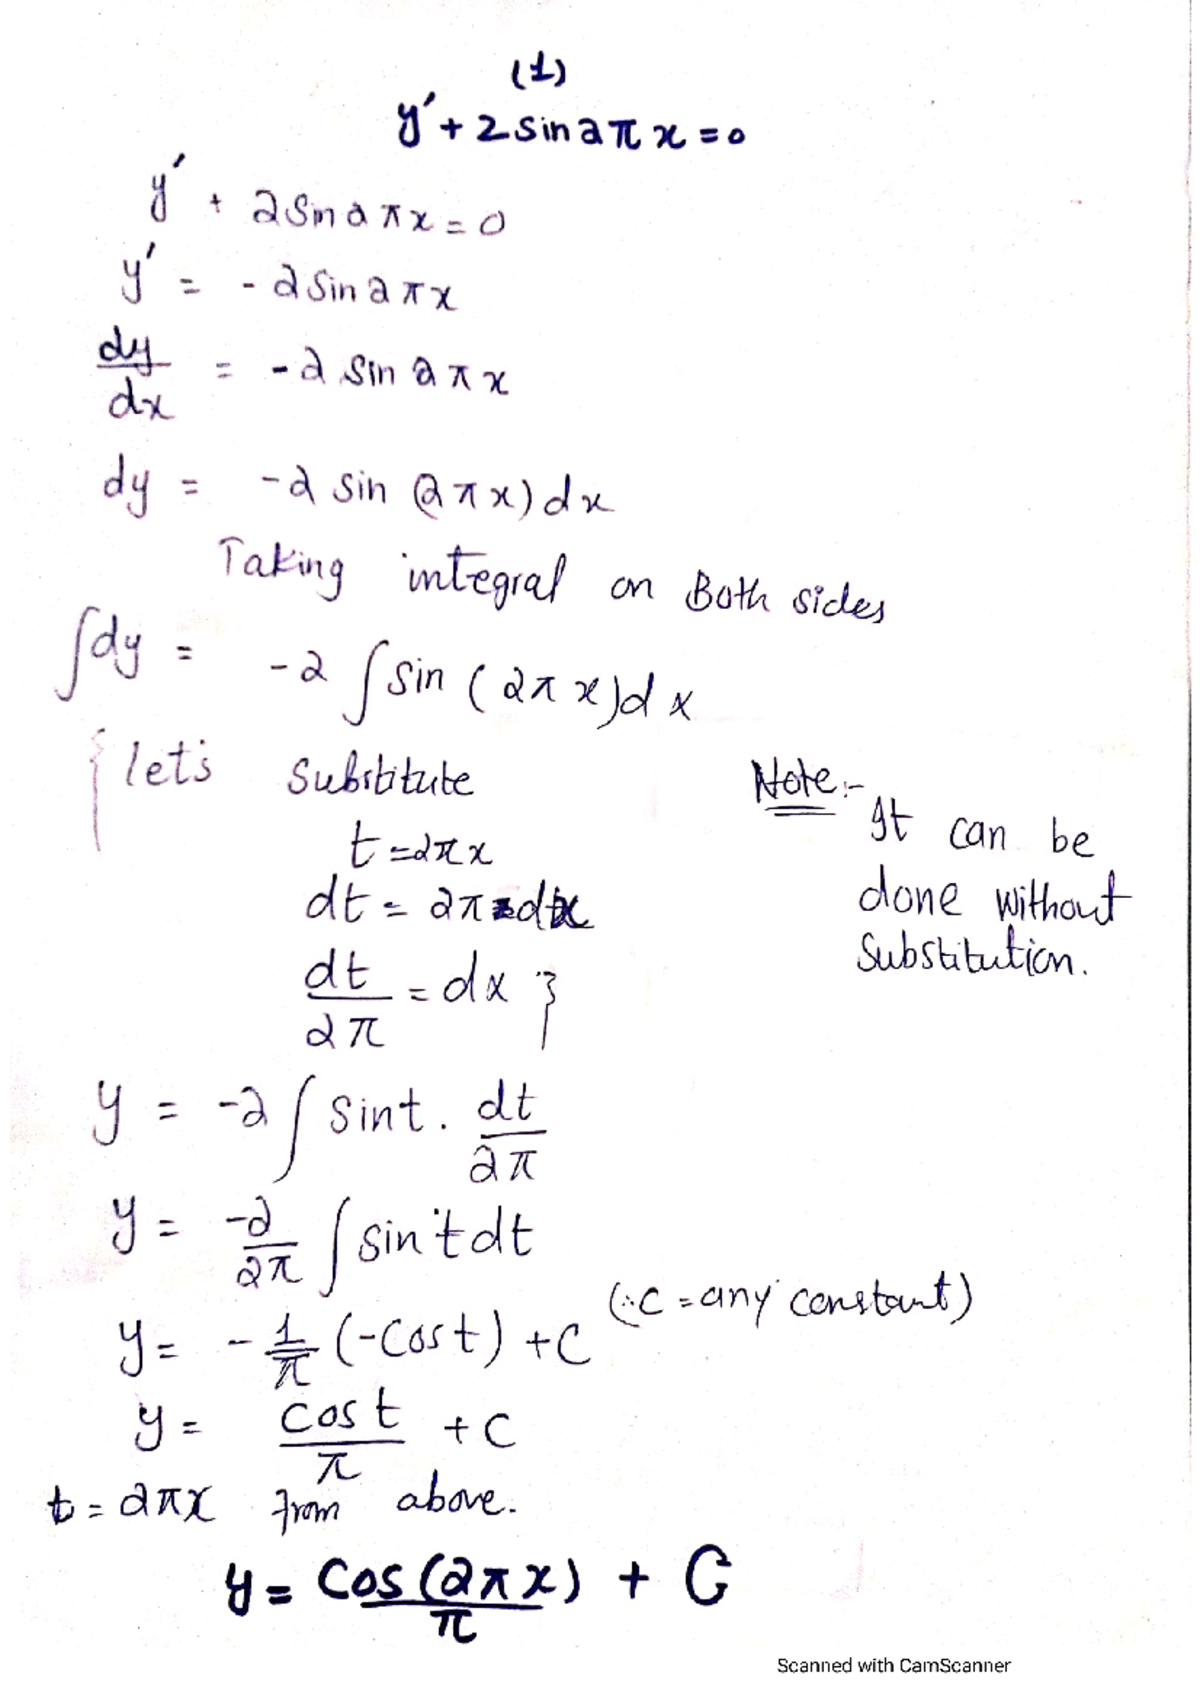 (1)
y′ + 2 sin 2π x = 0
y′ + 2 sin 2 π x = 0
y′ = - 2 sin 2 π x
dy/dx = - 2 sin 2 π x
dy = -2 sin (2 π x) dx
Taking integral on Both sides
∫dy = -2 ∫ sin ( 2π x) d x
{ let's Substitute
t = 2π x
dt = 2π dx
dt/2π = dx }
Note:-
It can be
done without
Substitution.
y = -2 ∫ sint. dt/2π
y = -2/2π ∫ sin t dt
y = - 1/π (-cost) + C (∴ C = any constant)
y = cos t/π + C
t = 2πx from above.
y = cos (2π x)/π + C
Scanned with CamScanner